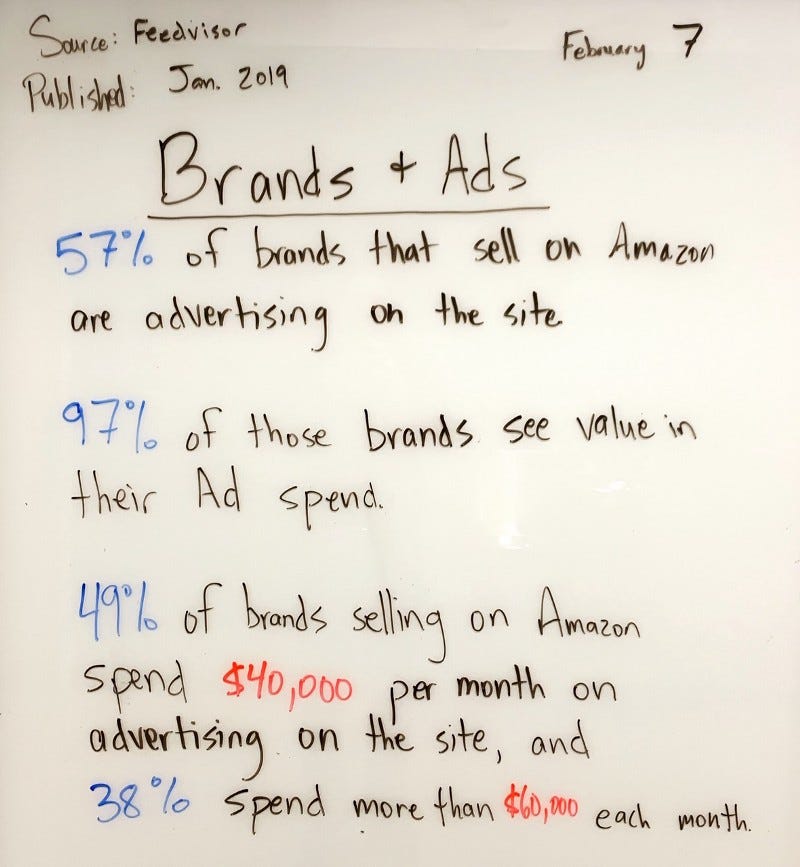 Source: Feedvisor
February 7
Published: Jan. 2019
Brands + Ads
57% of brands that sell on Amazon
are advertising on the site.
97% of those brands see value in
their Ad spend.
49% of brands selling on Amazon
spend $40,000 per month on
advertising on the site, and
38% spend more than $60,000 each month.